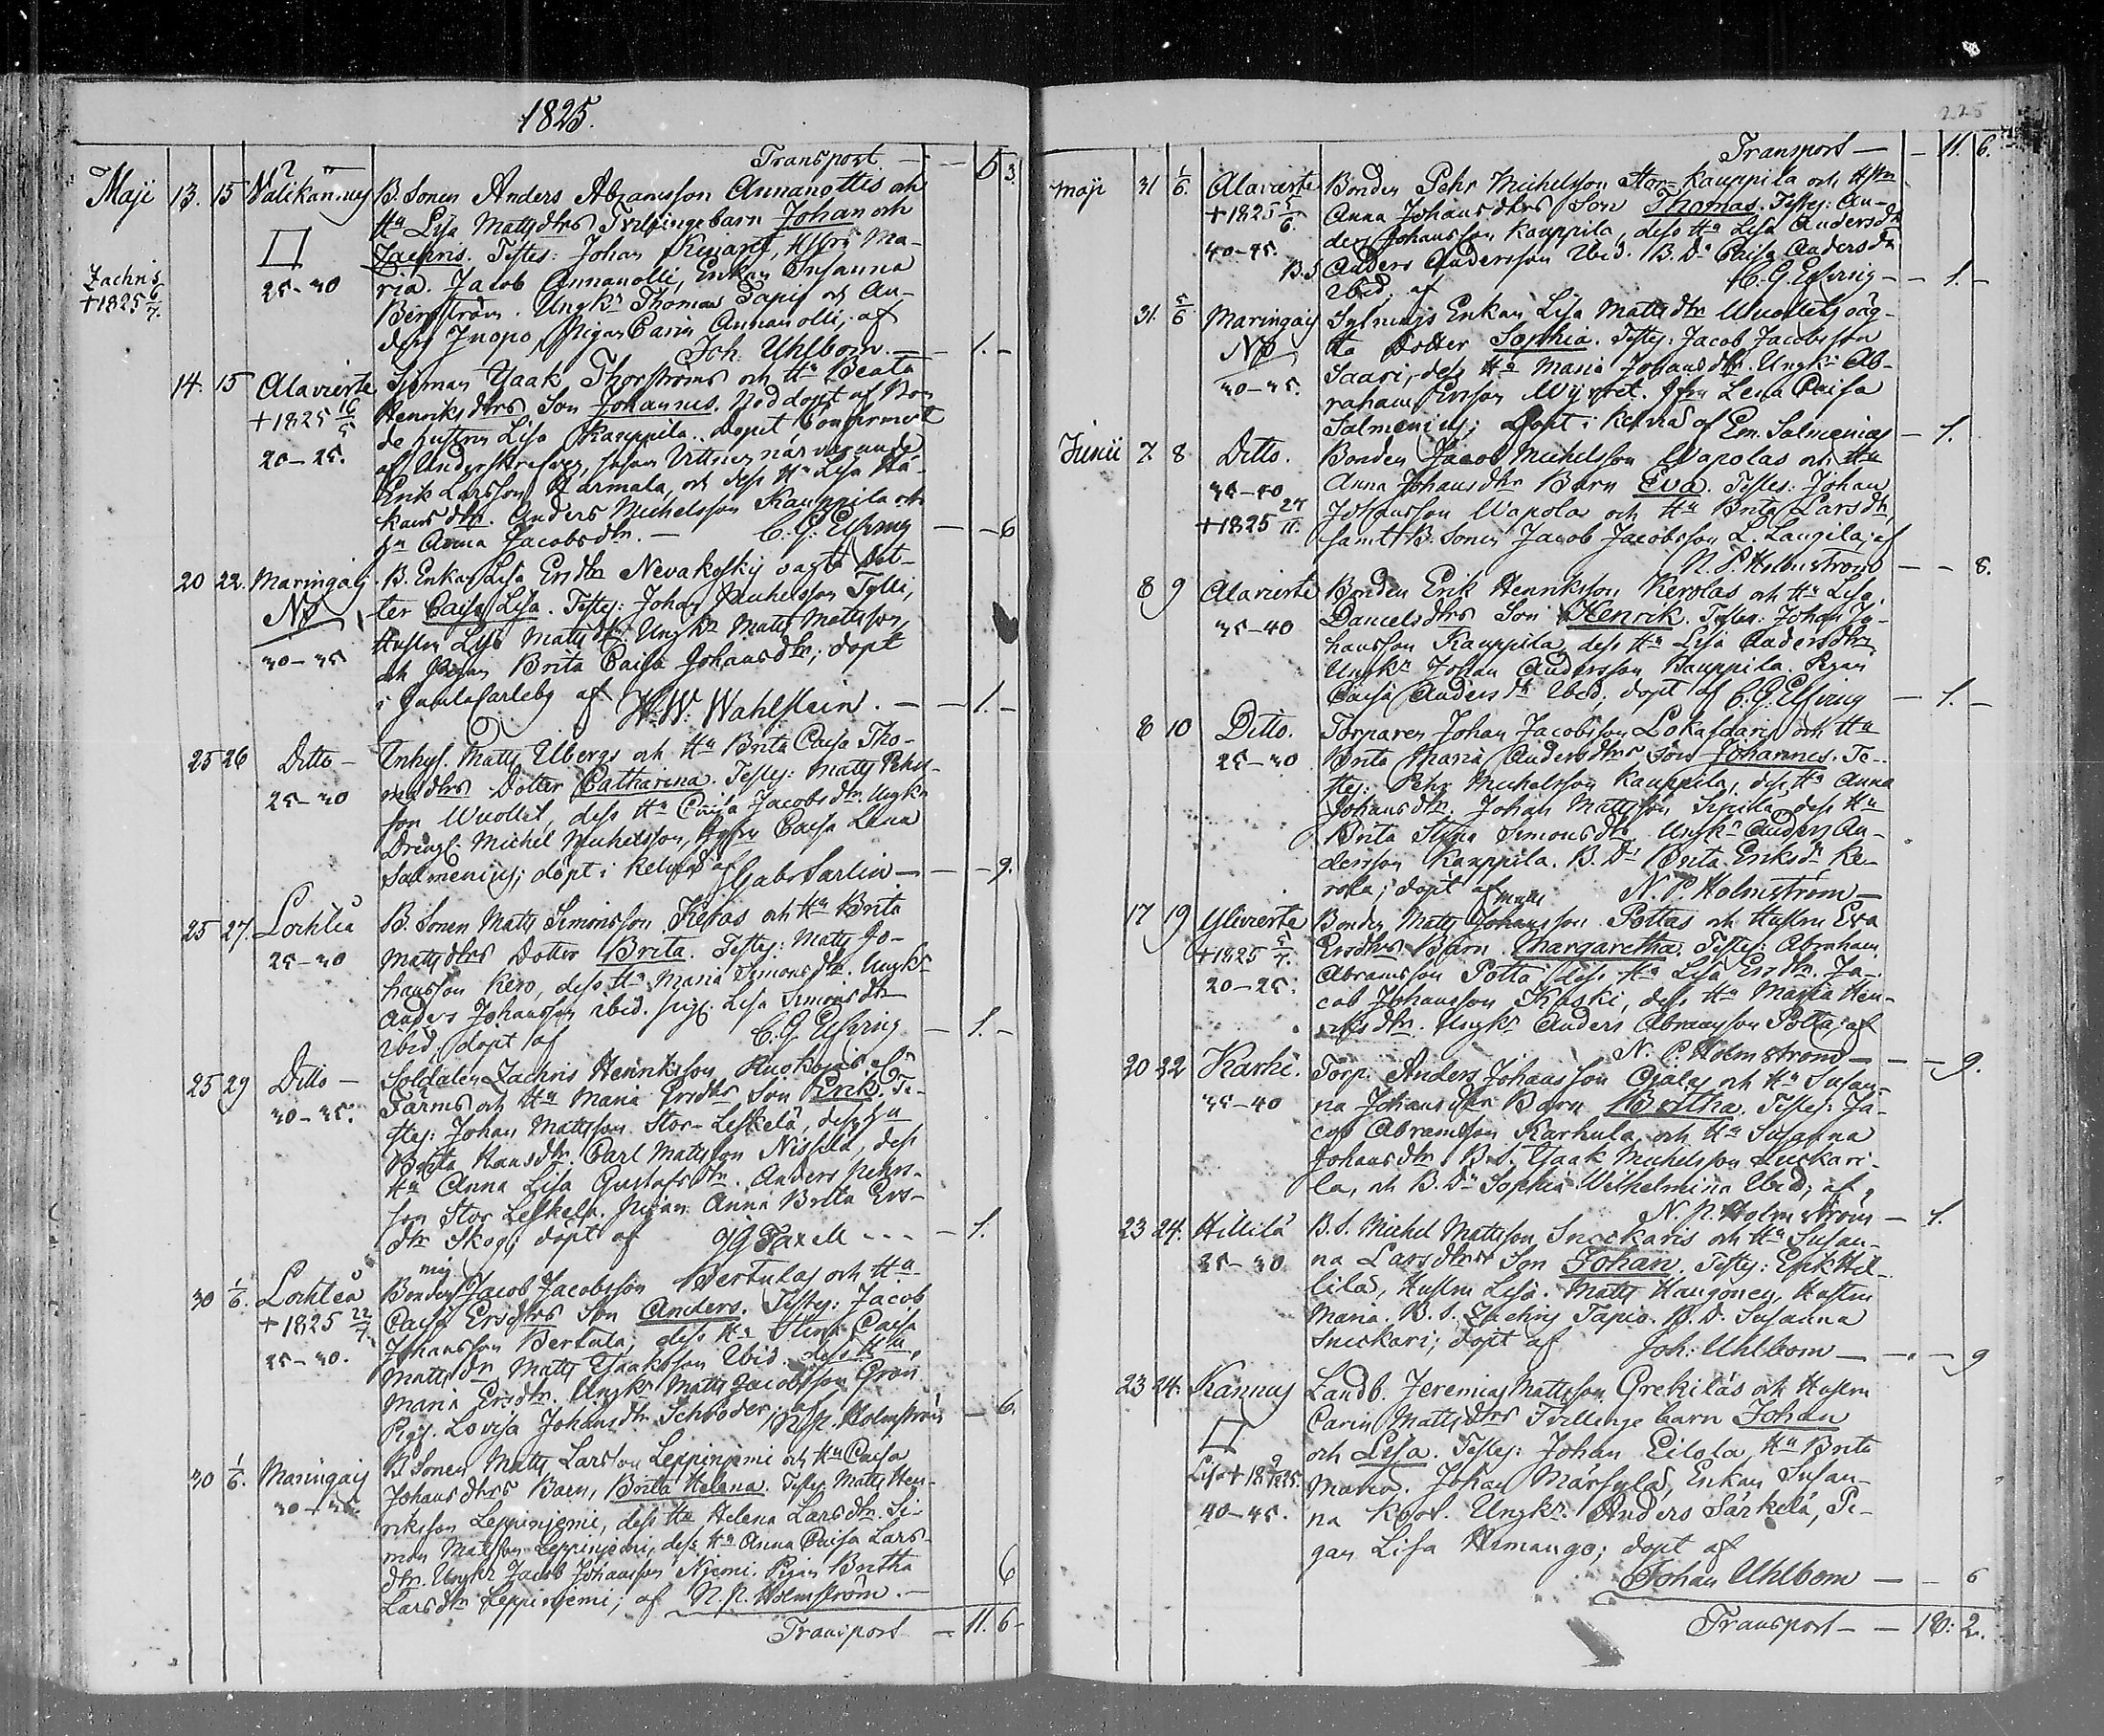 1825.
Transport — — 5 3.
Maji 13. 15 Välikannus B. Sonen Anders Abramsson Annanollis och
Hu Lisa Mattsdtrs Tvillingebarn Johan och
Zachris. Testes: Johan Hustru Ma-
Zachris ria. Jacob Annanolli, Enkan Susanna
+1825 6/7. 25-30 Bergström. Ungkn Thomas Tapio och An-
ders Juopo, Pigan Carin Annanolli, af
Joh. Uhlbom. — 1. —
14. 15 Alavierte Sjöman Isaak Thorströms och Hu Beata
+1825 16/5 Henriksdtrs Son Johannes. Nöddöpt af Bon
20-25. de hustrun Lisa Kauppila. döpet Confirmert
af Underskrefven, såsom Vittnen närvarande
Erik Larsson Harmala, och dess Hu Lisa Hå-
kansdtr. Anders Michelsson Kauppila och
Hu Anna Jacobsdtr. — C. G. Elfving — — 6
20 22. Maringais B. Enkan Lisa Ersdtr Nevakoskis oägta Dot-
No ter Caisa Lisa. Testes: Johan Michelsson Tylli,
Hustrun Lisa Mattsdtr. Ungkn Matts Mattsson,
30-35 och Pigan Brita Caisa Johansdtr; döpt
i Gamlacarleby af W. W. Wahlstein. — — 1. —
25 26 Ditto — Inhys. Matts Übergs och Hu Brita Caisa Tho-
25-30 masdtrs Dotter Catharina. Testes: Matts Pehrs-
son Wuollet, dess Hu Caisa Jacobsdtr. Ungkn
Dreng. Michel Michelsson, Caisa Lena
Salmenius; döpt i Kelviå af Gabr Sarlin — — 9.
25 27. Lochteå B. Sonen Matts Simonsson Keros och Hu Brita
25-30 Mattsdtrs Dotter Brita. Testes: Matts Jo-
hansson Kero, dess Hu Maria Simonsdtr. Ungkn
Anders Johansson ibid. Pig. Lisa Simonsdtr
ibid, döpt af C. G. Elfving — 1. —
25 29 Ditto — Soldaten Zachris Henriksson Ruskojas el.
30-35. Färms och Hu Maria Ersdtrs Son Erik. Te-
stes: Johan Mattsson Stor-Leskelä, dess Hu
Brita Hansdtr. Carl Mattsson Nissilä, dess
Hu Anna Lisa Gustafsdtr. Anders Pehrs-
son Stor Leskelä. Pigan Anna Brita Ers-
dtr Skog, döpt af G G Taxell — — — 1.
30 1/6. Lochteå Bonden Jacob Jacobsson Bertulas och Hu
+1825 22/7. Caisa Ersdtrs Son Anders. Testes: Jacob
Johansson Bertula, dess Hu Stina Caisa
25-30. Mattsdtr. Matts Isaaksson ibid. dess Hu
Maria Ersdtr. Ungkn Matts Jacobsson Grön
Pig. Lovisa Johansdtr Schröder; af N. P. Holmström — 6.
30 1/6. Maringais B. Sonen Matts Larsson Leppinjemi och Hu Caisa
30-35 Johansdtrs Barn, Brita Helena. Testes: Matts Hen-
riksson Leppinjemi, dess Hu Helena Larsdtr. Si-
mon Mattsson Leppinjemi, dess Hu Anna Caisa Lars-
dtr. Ungkn Jacob Johansson Njemi. Pigan Britha
Larsdtr Leppinjemi; af N. P. Holmström. — 6
Transport — 11. 6 -
225
Transport — — 11. 6.
Maji 31 1/6. Alavierte Bonden Pehr Michelsson Stor-Kauppila och Hstru
+1825 5/6. Anna Johansdtrs Son Thomas. Testes: An-
ders Johansson Kauppila, dess Hu Lisa Andersdtr
40-45. B.S. Anders Andersson ibid. B. Dr Caisa Andersdtr
ibid; af C. G. Elfving — — 1. —
31. 5/6 Maringais Sytnings Enkan Lisa Mattsdtr Wuollets oäg-
No ta Dotter Sophia. Testes: Jacob Jacobsson
Saari, dess Hu Maria Johansdtr. Ungkn Ab-
30-35. raham Ersson Lena Caisa
Salmenius; döpt i Kelviå af Em. Salmenius — 1.
Junii 7. 8 Ditto. Bonden Jacob Michelsson Wapolas och Hu
35-40 Anna Johansdtrs Barn Eva. Testes: Johan
+1825 27/11. Johansson Wapola och Hu Brita Larsdtr,
samt B. Sonen Jacob Jacobsson L. Laugila; af
N. P. Holmström — — 8.
8 9 Alavierte Bonden Erik Henriksson Kerolas och Hu Lisa
35-40 Danielsdtrs Son Henrik. Testes: Johan Jo-
hansson Kauppila, dess Hu Lisa Andersdtr
Ungkn Johan Andersson Kauppila. Pigan
Caisa Andersdr ibid; döpt af C. G. Elfving — 1. —
8 10 Ditto. Torparen Johan Jacobsson Lokasaaris och Hu
25-30 Brita Maria Andersdtrs Son Johannes. Te-
stes: Pehr Michelsson Kauppila, dess Hu Anna
Johansdtr. Johan Mattsson Sipilä, dess Hu
Brita Stina Simonsdtr. Ungkn Anders An-
dersson Kauppila. B. Dr Brita Eriksdr Ke-
rola; döpt af N. P. Holmström —
17 19 Ylivierte Bonden Matts Johansson Pottas och Hustrun Eva
+1825 5/7. Ersdtrs Barn Margaretha. Testes: Abraham
Abramsson Potta, dess Hu Lisa Ersdtr. Ja-
20-25. cob Johansson Koski, dess Hu Maria Hen-
riksdtr. Ungkn Anders Abramsson Potta af
N. P. Holmström — — — 9.
20 22 Karhi. Torp. Anders Johansson Ojalas och Hu Susan-
35-40 na Johansdtrs Barn Britha. Testes: Ja-
cob Abramsson Karhula, och Hu Susanna
Johansdtr. B. S. Isaak Michelsson Luckari-
la, och B. Dr Sophia Wilhelmina ibid, af
N. P. Holmström — 1.
23 24. Hillilä B. S. Michel Mattsson Snickaris och Hu Susan-
25-30 na Larsdtrs Son Johan. Testes: Erik Hil-
lilä, Hustrun Lisa. Matts Haugonen, Hustrun
Maria. B. S. Zachris Tapio. B. D. Susanna
Snickari; döpt af Joh: Uhlbom — — 9
23 24. Kannus Landb. Jeremias Mattsson Grekiläs och Hustrun
Carin Mattsdtrs Tvillinge barn Johan
och Lisa. Testes: Johan Eilola, Hu Brita
Lisa + 1825. Maria. Johan Märsylä, Enkan Susan-
40-45. na Koot. Ungkn. Anders Särkelä, Pi-
gan Lisa Himango; döpt af
Johan Uhlbom — — 6
Transport — — 18: 2.